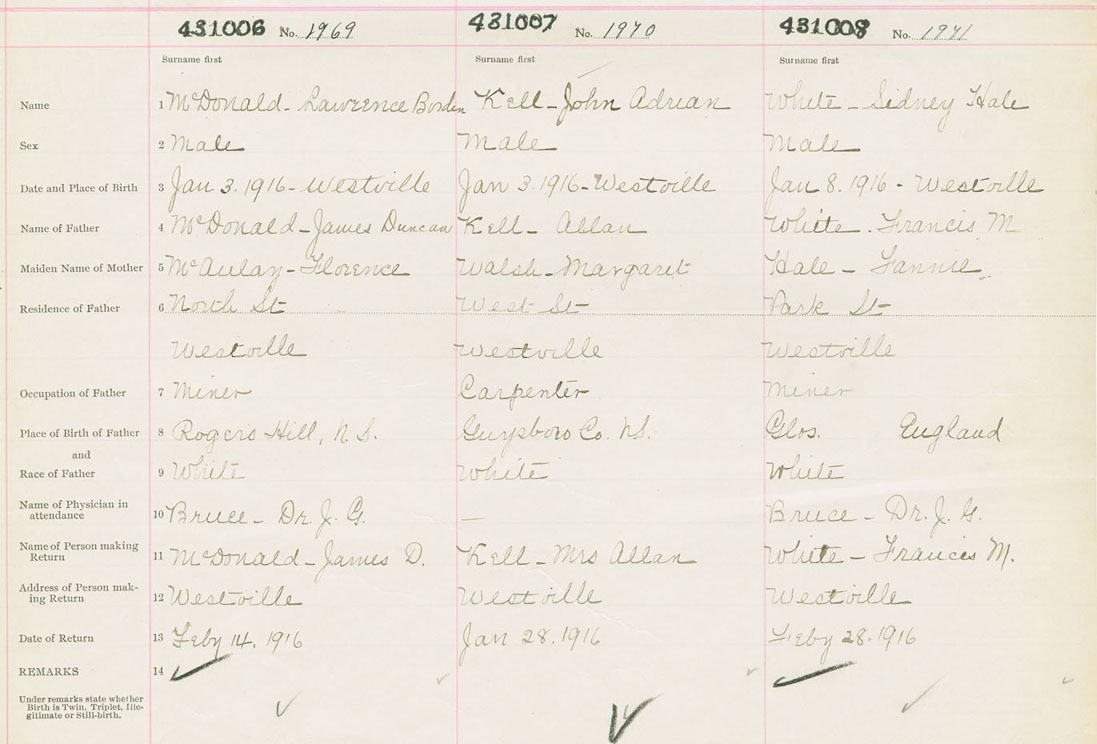 431006 No. 1969 431007 No. 1970 431008 No. 1971
Surname first Surname first Surname first
Name 1 McDonald - Lawrence Borden Kell - John Adrian White - Sidney Hale
Sex 2 Male Male Male
Date and Place of Birth 3 Jan 3. 1916 - Westville Jan 3. 1916 - Westville Jan 8. 1916 - Westville
Name of Father 4 McDonald - James Duncan Kell - Allan White . Francis M
Maiden Name of Mother 5 McAulay - Florence Walsh - Margaret Hale - Fannie
Residence of Father 6 North St West St Park St
Westville Westville Westville
Occupation of Father 7 Miner Carpenter Miner
Place of Birth of Father 8 Rogers Hill, N S. Guysboro Co. N.S. Glos. England
and
Race of Father 9 White White White
Name of Physician in
attendance 10 Bruce - Dr. J. G. — Bruce - Dr. J. G.
Name of Person making
Return 11 McDonald - James D. Kell - Mrs Allan White - Francis M.
Address of Person mak-
ing Return 12 Westville Westville Westville
Date of Return 13 Feby 14. 1916 Jan 28. 1916 Feby 28. 1916
REMARKS 14
Under remarks state whether
Birth is Twin, Triplet, Ille-
gitimate or Still-birth.